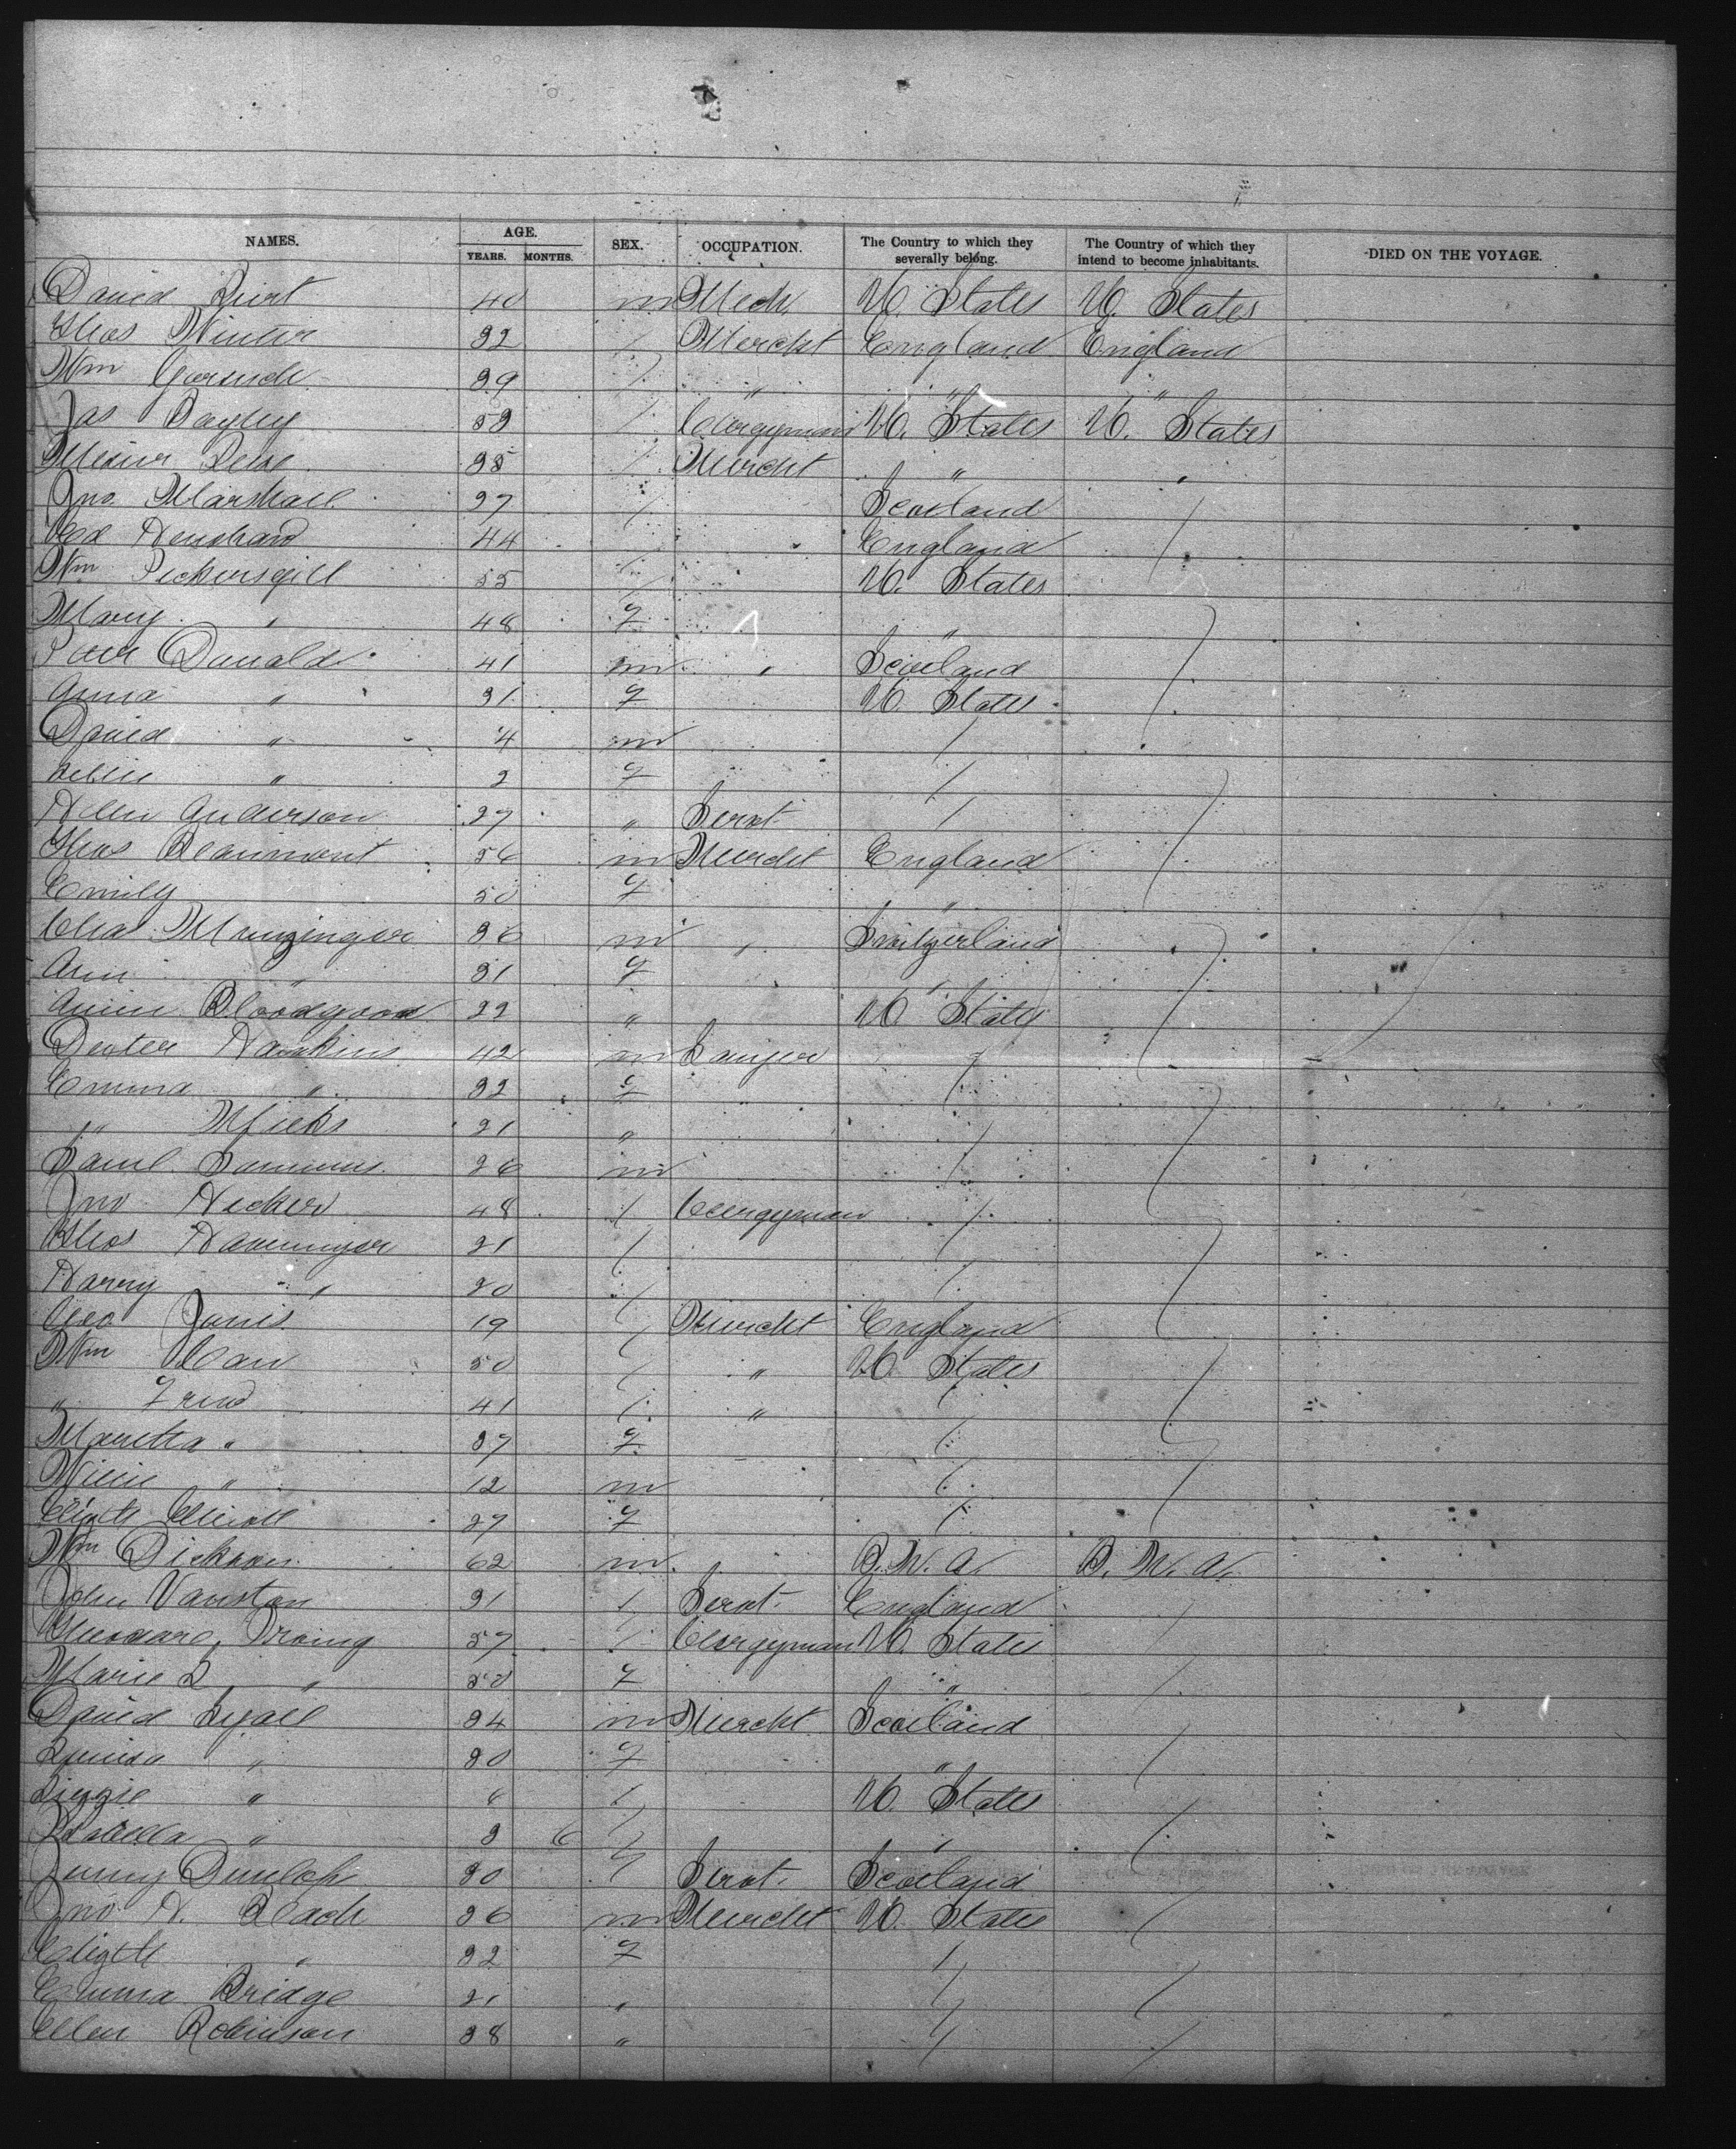 NAMES. AGE. YEARS. MONTHS. SEX. OCCUPATION. The Country to which they severally belong. The Country of which they intend to become inhabitants. DIED ON THE VOYAGE.
David 40 m Mech. U. States U. States
Thos Winter 32 / Mercht England England
Wm 39 / " " "
Jas Bayley 59 / Clergyman U. States U. States
35 / Mercht " "
Jno. Marshall 37 / Scotland /
Ed Henshaw 44 / England /
Wm Pickersgill 55 / U. States
Mary " 48 f "
Donald 41 m " Scotland
Anna " 31 f U. States
David " 4 m /
" 2 f /
Anderson 27 " Servt /
Thos Beaumont 56 m Mercht England
Emily 50 f "
Chas Munzinger 36 m " Switzerland
Ann " 31 f "
Annie Bloodgood 22 " U. States
Dexter Hawkins 42 m Lawyer /
Emma " 32 f /
" Meeks 21 " /
Saml. Sammis 26 m /
Jno. Hecker 48 / Clergyman /
Thos 21 / /
Harry " 20 / /
Geo Jarvis 19 / Mercht England
Wm 50 / " U. States
" Frew 41 / " /
Martha " 37 f /
Willie " 12 m /
Elizth Elliott 27 f /
Wm Dickson 62 m B. N. A. B. N. A.
John Vanston 31 / Servt. England /
Theodore Irving 57 / Clergyman U. States
Marie L " 50 f "
David Lyall 34 m Mercht Scotland
Louisa " 30 f "
Lizzie " 6 / U. States
Isabella " 3 6 / /
Jenny Dunlop 30 / Servt. Scotland
Jno. H. Beach 36 m Mercht U. States
Elizth " 32 f /
Emma Bridge 21 " /
Ellen Robinson 38 " /